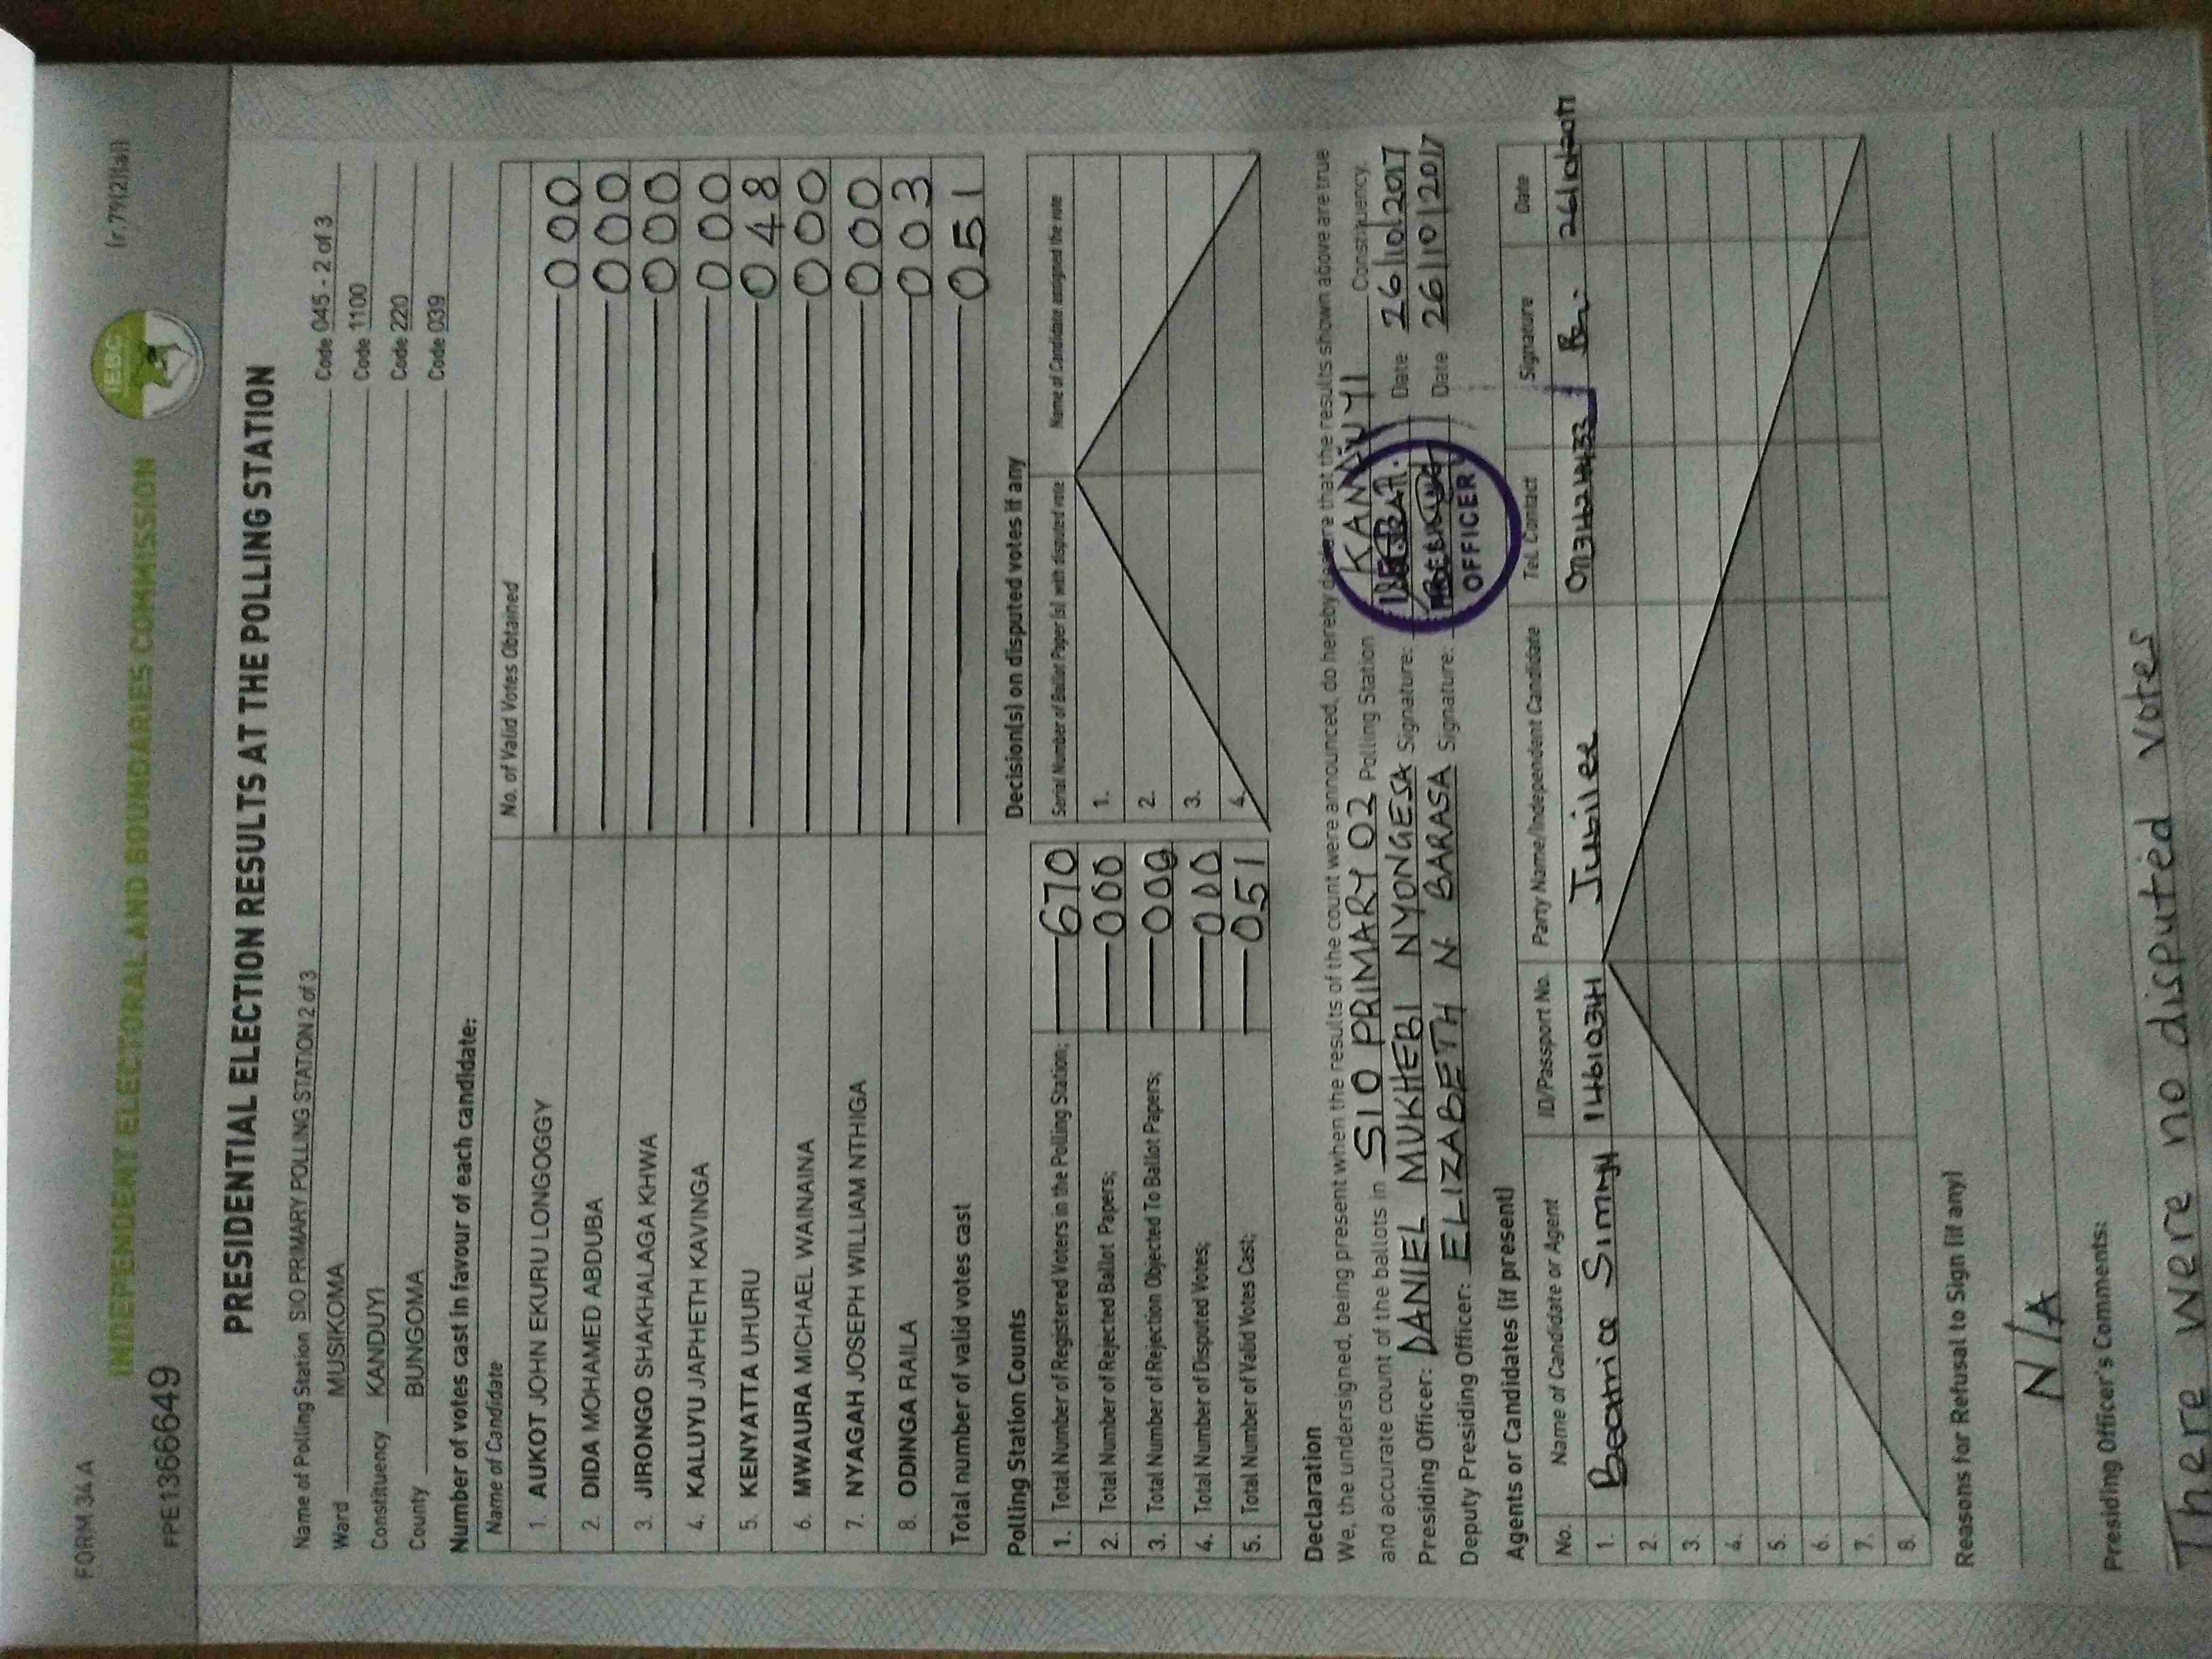 FORM 34 A
INDEPENDENT ELECTORAL AND BOUNDARIES COMMISSION
IEBC
(r.79(2)(a))
FPE1366649
PRESIDENTIAL ELECTION RESULTS AT THE POLLING STATION
Name of Polling Station SIO PRIMARY POLLING STATION 2 of 3 Code 045 - 2 of 3
Ward MUSIKOMA Code 1100
Constituency KANDUYI Code 220
County BUNGOMA Code 039
Number of votes cast in favour of each candidate:
Name of Candidate No. of Valid Votes Obtained
1. AUKOT JOHN EKURU LONGOGGY 000
2. DIDA MOHAMED ABDUBA 000
3. JIRONGO SHAKHALAGA KHWA 000
4. KALUYU JAPHETH KAVINGA 000
5. KENYATTA UHURU 048
6. MWAURA MICHAEL WAINAINA 000
7. NYAGAH JOSEPH WILLIAM NTHIGA 000
8. ODINGA RAILA 003
Total number of valid votes cast 051
Polling Station Counts
1. Total Number of Registered Voters in the Polling Station; 670
2. Total Number of Rejected Ballot Papers; 000
3. Total Number of Rejection Objected To Ballot Papers; 000
4. Total Number of Disputed Votes; 000
5. Total Number of Valid Votes Cast; 051
Decision(s) on disputed votes if any
Serial Number of Ballot Paper (s) with disputed vote Name of Candidate assigned the vote
1.
2.
3.
4.
Declaration
We, the undersigned, being present when the results of the count were announced, do hereby declare that the results shown above are true
and accurate count of the ballots in SIO PRIMARY 02 Polling Station KANDUYI Constituency.
Presiding Officer: DANIEL MUKHEBI NYONGESA Signature: Date 26/10/2017
Deputy Presiding Officer: ELIZABETH N BARASA Signature: Date 26/10/2017
PRESIDING
OFFICER
Agents or Candidates (if present)
No. Name of Candidate or Agent ID/Passport No. Party Name/Independent Candidate Tel. Contact Signature Date
1. Beatrice 14610344 Jubilee
2.
3.
4.
5.
6.
7.
8.
Reasons for Refusal to Sign (if any)
N/A
Presiding Officer's Comments:
There were no disputed votes